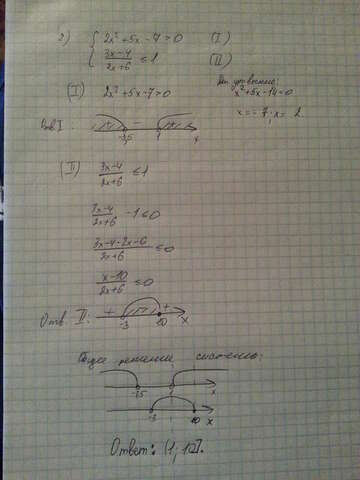 2) { 2x² + 5x - 7 > 0 (I)
3x-4/2x+6 ≤ 1 (II)
(I) 2x² + 5x - 7 > 0
x² + 5x - 14 = 0
x = -7; x = 2
Отв I.
-3,5 1 x
(II) 3x-4/2x+6 ≤ 1
3x-4/2x+6 - 1 ≤ 0
3x-4-2x-6/2x+6 ≤ 0
x-10/2x+6 ≤ 0
Отв. II: + -3 + 10 x
Общее решение системы:
-3,5 1 x
-3 10 x
Ответ: (1; 10].